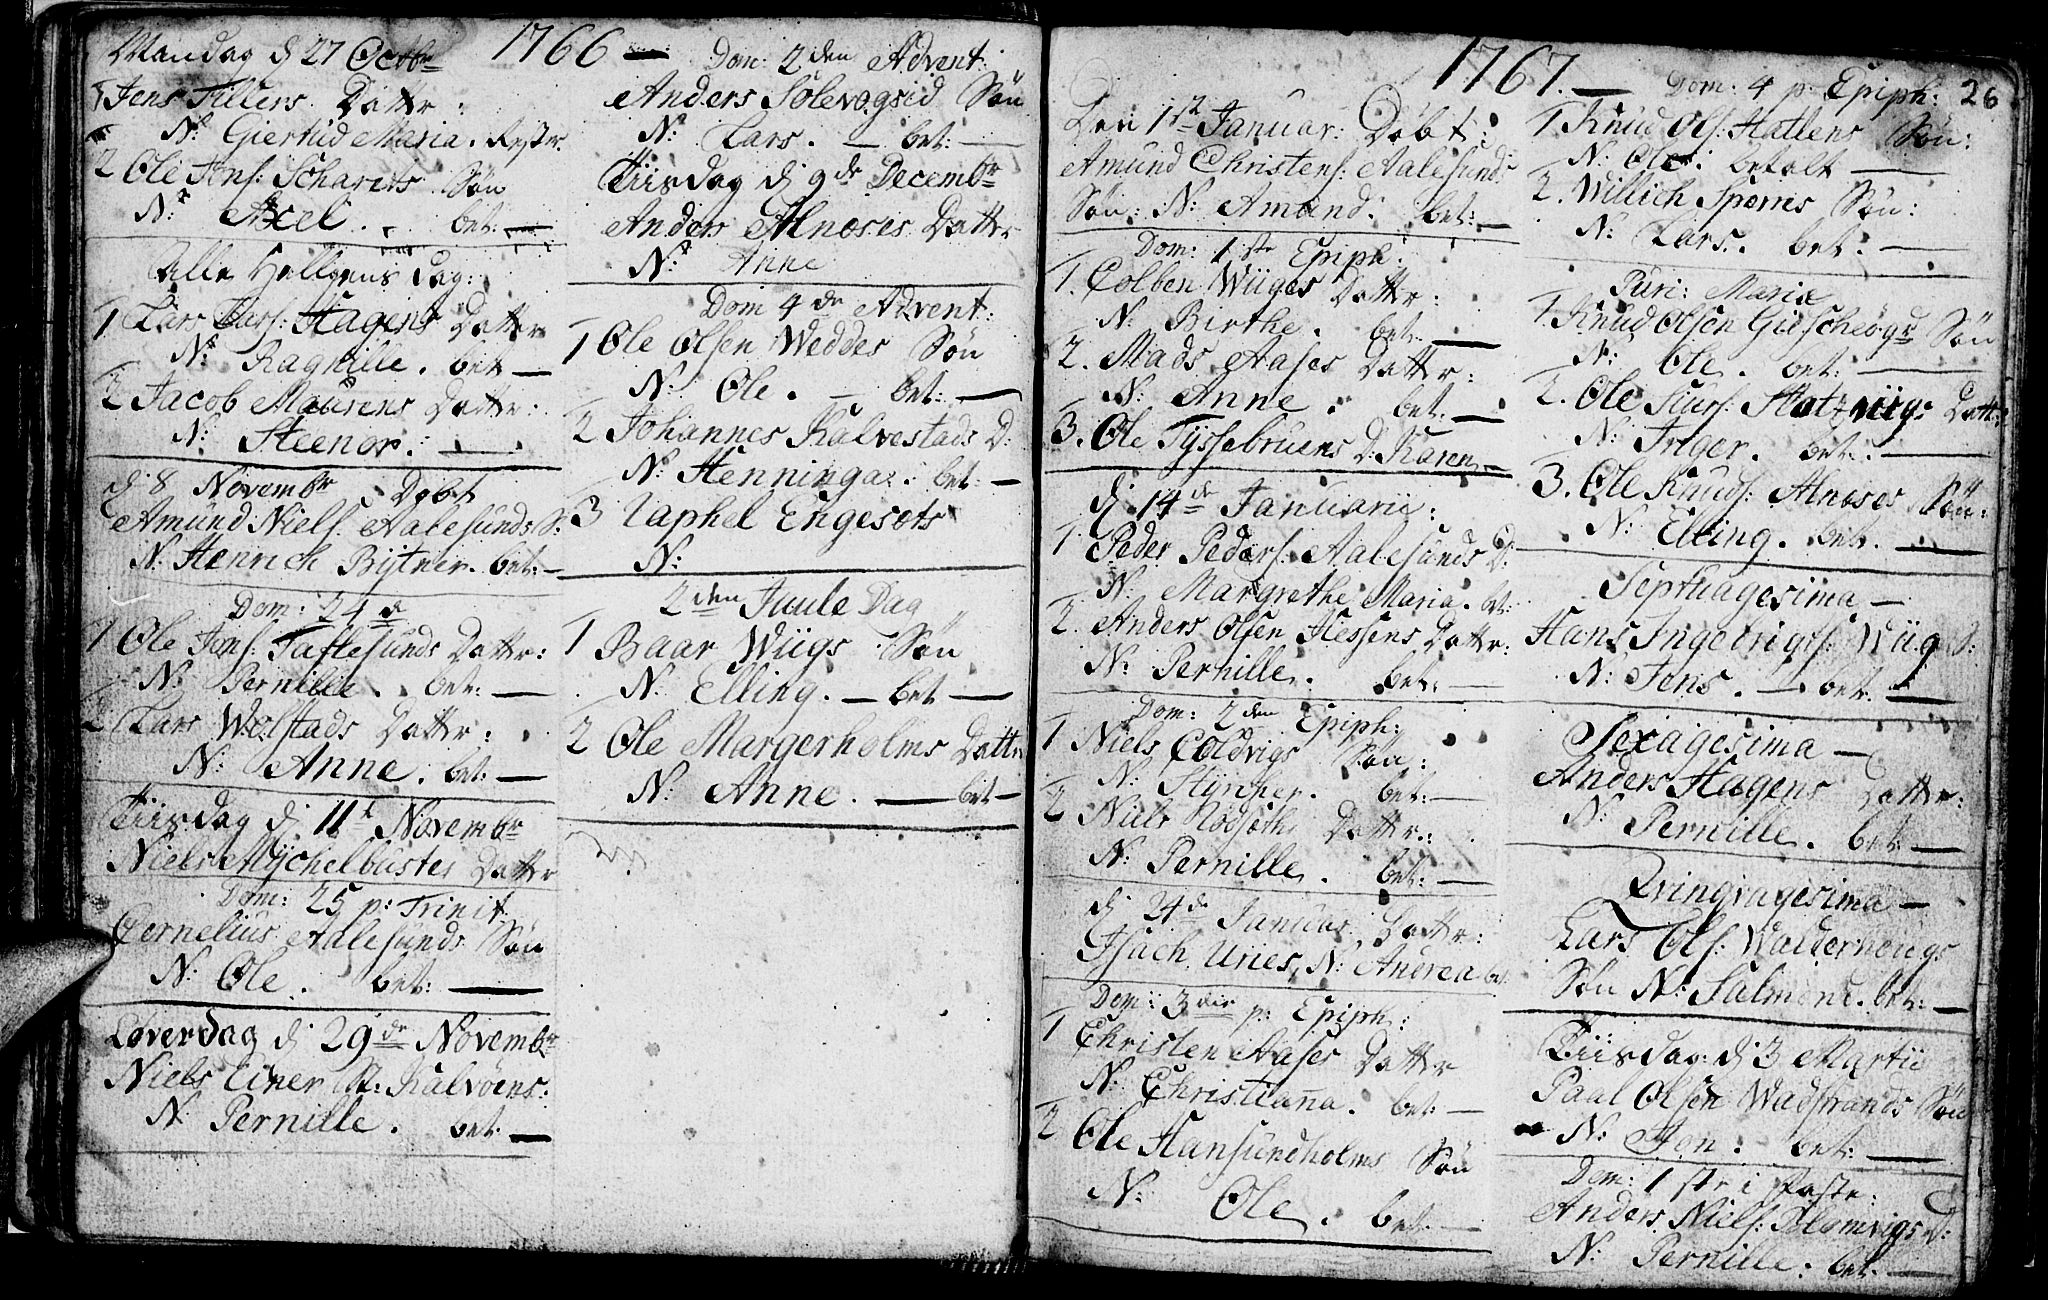 1766 —
Mandag d 27 Octbr
1 Jens Tillers Dattr:
N: Giertud Maria. Restr.
2 Ole Jons: Scharets Søn
N: Axel. bet: —
Alle Hellgens Dag:
1 Lars Lars: Hagens Dattr
N: Ragnille. bet —
2 Jacob Maurens Dattr:
N: Steenor. : —
d 8 Novembr Døbt
Amund Niels: Aalesunds S:
N: Henrich Bijtner. bet: —
Dom: 24 d
1 Ole Jons: Taftesunds Dattr:
N: Pernille. bet: —
2 Lars Wolstads Dattr:
N: Anne. bet: —
Tiisdag d 11t Novembr
Niels Mychelbustes Dattr
Dom: 25 p: Trinit
Cornelius Aalesunds Søn
N: Ole. bet: —
Løverdag d 29de Novembr
Niels Einer Kalvøens:
N: Pernille. bet: —
Dom: 2den Advent:
Anders Solevogsid Søn
N: Lars. — bet: —
Tiisdag d 9de Decembr
Anders Alnoses Dattr
N: Anne
Dom 4de Advent:
1 Ole Olsen Weddes Søn
N: Ole. — bet: —
2 Johannes Kalvestads D:
N: Henninga: bet: —
3 Raphel Engesets
N:
2den Juule Dag
1 Baar Wiigs Søn
N: Elling. — bet —
2 Ole Margerholms Dattr
N: Anne. — bet —
1767. —
26
Den 1ste Januar: Døbt:
Amund Christens: Aalesunds
Søn: N: Amund. bet: —
Dom: 1ste Epiph:
1. Colben Wiiges Dattr:
N: Birthe. bet: —
2. Mads Aases Dattr:
N: Anne. bet: —
3. Ole Tyssebruens D: Karen —
d 14de Januarii:
1. Peder Peders: Aalesunds D:
N: Margrethe Maria. bt:
2. Anders Olsen Hessens Dattr:
N: Pernille. bet: —
Dom: 2den Epiph:
1 Niels Coldvigs Søn:
N: bet: —
2 Niels Rodseths Dattr:
N: Pernille. bet: —
d 24de Januar Dattr:
Isach Uries, N: Andrea bet
Dom: 3die p: Epiph:
1 Christen Aases Dattr
N: Christiana. bet: —
2 Ole Hansundholms Søn
N: Ole. bet: —
Dom: 4 p: Epiph:
1 Knud Ols: Hatlens Søn:
N: Ole. betalt —
2. Willich Sporrs Søn:
N: Lars. bet: —
Puri: Mariæ
1. Knud Olsen Gieschøgr Søn
N: Ole. bet: —
2. Ole Siurs: Datt:
N: Inger. bet: —
3. Ole Knuds: Alnoses Søn:
N: Elling. bet. —
Septuagesima —
Hans Ingebrigts: Wiig S:
N: Jens. — bet: —
Sexagesima —
Anders Hagens Dattr:
N: Pernille. bet: —
Qvinqvagesima —
Lars Ols: Walderhougs
Søn N: Salmond. bet: —
Tiisdag: d 3 Martii
Paal Olsen Wadstrands Søn
N: Jon: bet: —
Dom: 1ste i Faste:
Anders Niels: Blomvigs D:
N: Pernille: bet. —